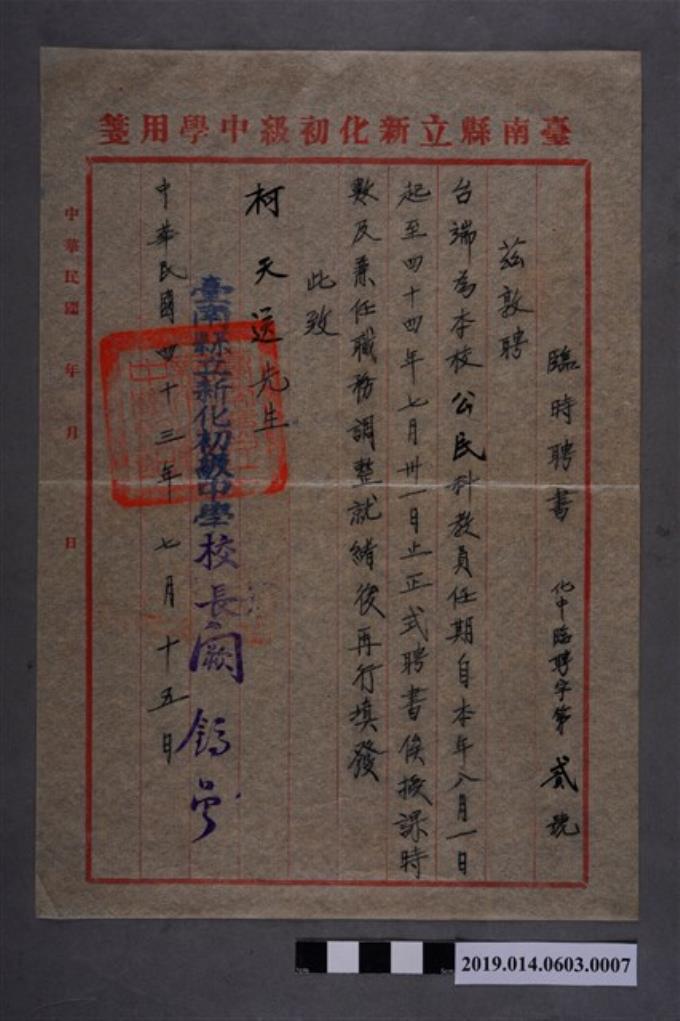 臺南縣立新化初級中學用箋
臨時聘書 化中臨聘字第貳號
茲敦聘
台端為本校公民科教員任期自本年八月一日
起至四十四年七月卅一日止正式聘書俟授課時
數及兼任職務調整就緒後再行填發
此致
柯天送先生
臺南縣立新化初級中學校長闕
中華民國四十三年七月十五日
中華民國 年 月 日
2019.014.0603.0007